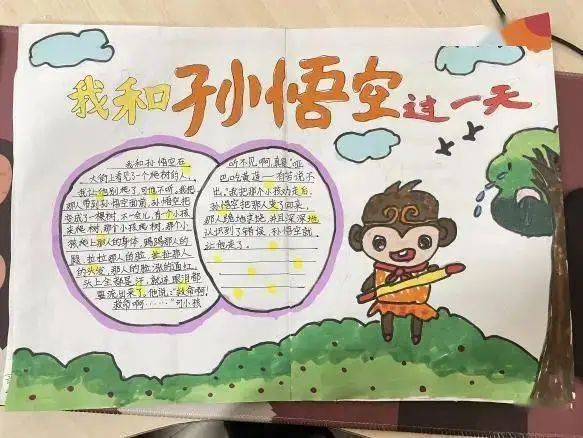 我和孙悟空过一天
我和孙悟空在
大街上看见了一个爬树的人,
我让他别爬了,可他不听。我把
那人带到孙悟空面前,孙悟空把
变成了一棵树,不一会儿,有个小孩
来爬树,那个小孩爬树,那个小
孩爬上那人的身体,踢踢那人的
腿,拉拉那人的脸,扯拉那人
的头发,那人的脸涨的通红,
头上全都是汗,就连眼泪都
要流出来了。他说:“救命啊!
救命啊……”可小孩
听不见啊,真是“哑
巴吃黄连——有苦说不
出。”我把那个小孩劝走后,
孙悟空把那人变了回来,
那人跪地求饶,并且深深地
认识到了错误,孙悟空就
让他走了。